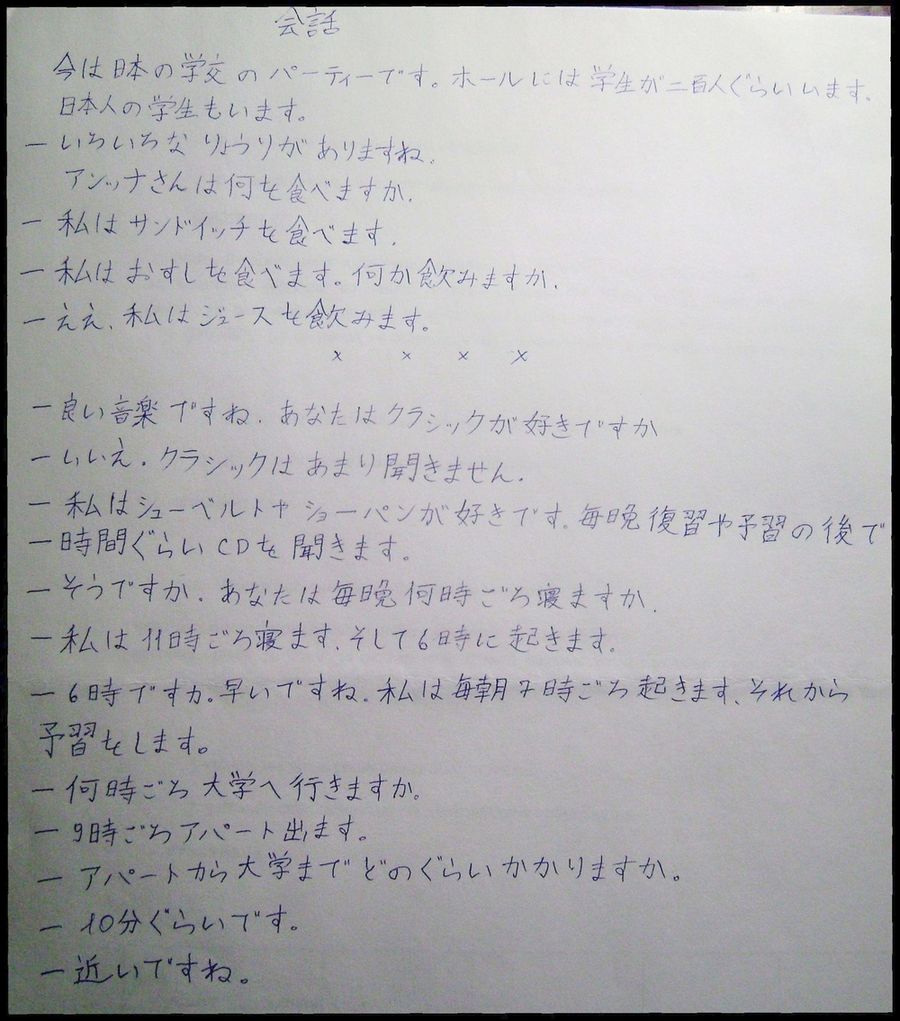 会話
今は日本の学交のパーティーです。ホールには学生が二百人ぐらいいます。
日本人の学生もいます。
ー いろいろなりょうりがありますね.
アンッナさんは何を食べますか.
ー 私はサンドイッチを食べます.
ー 私はおすしを食べます。何か飲みますか.
ー ええ、私はジュースを飲みます。
x x x x
ー 良い音楽ですね. あなたはクラシックが好きですか
ー いいえ. クラシックはあまり聞きません.
ー 私はシューベルトやショーパンが好きです。毎晩復習や予習の後で
一時間ぐらいCDを聞きます。
ー そうですか. あなたは毎晩何時ごろ寝ますか.
ー 私は11時ごろ寝ます、そして6時に起きます.
ー 6時ですか。早いですね. 私は毎朝7時ごろ起きます、それから
予習をします。
ー 何時ごろ大学へ行きますか。
ー 9時ごろアパート出ます。
ー アパートから大学までどのぐらいかかりますか。
ー 10分ぐらいです。
ー 近いですね。